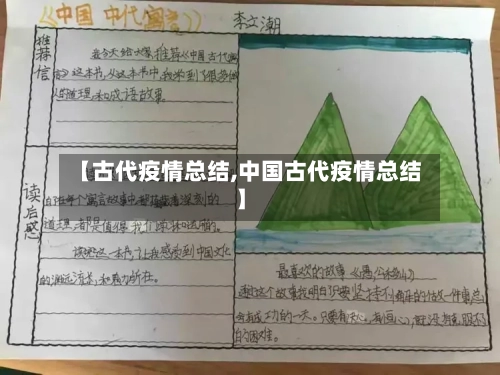 《中国古代寓言》
李文潮
推荐信
我今天给大家推荐《中国古代寓
言》这本书,从这本书中,我学到了很多做
人的道理,和成语故事。
【古代疫情总结,中国古代疫情总结
】
读后感
每个寓言故事中都
道理,都是值得我们
读完这一本书,让我感知到中国文化
的源远流长,和魅力所在。
最喜欢的故事《愚公移山》
通过这个故事我明白只要坚持不
会有成功的一天。只要有决心,有恒心,
的困难。